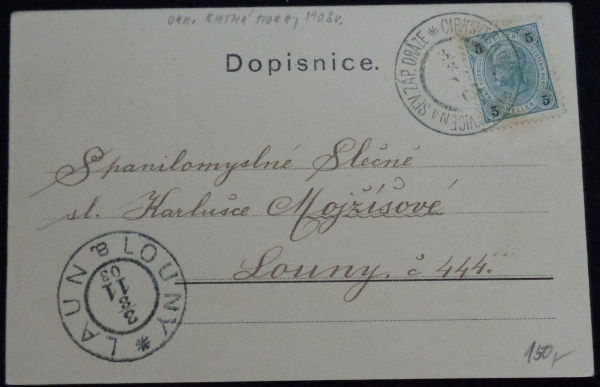 OKR. KUTNÁ HORA, 1903v.
Dopisnice.
NA SEV. ZÁP. DRÁZE * CIRKV
5 5
5 5
Spanilomyslné Slečně
sl. Karlušce Mojžíšové
Louny. č 444.
LAUN * LOUNY
150,-